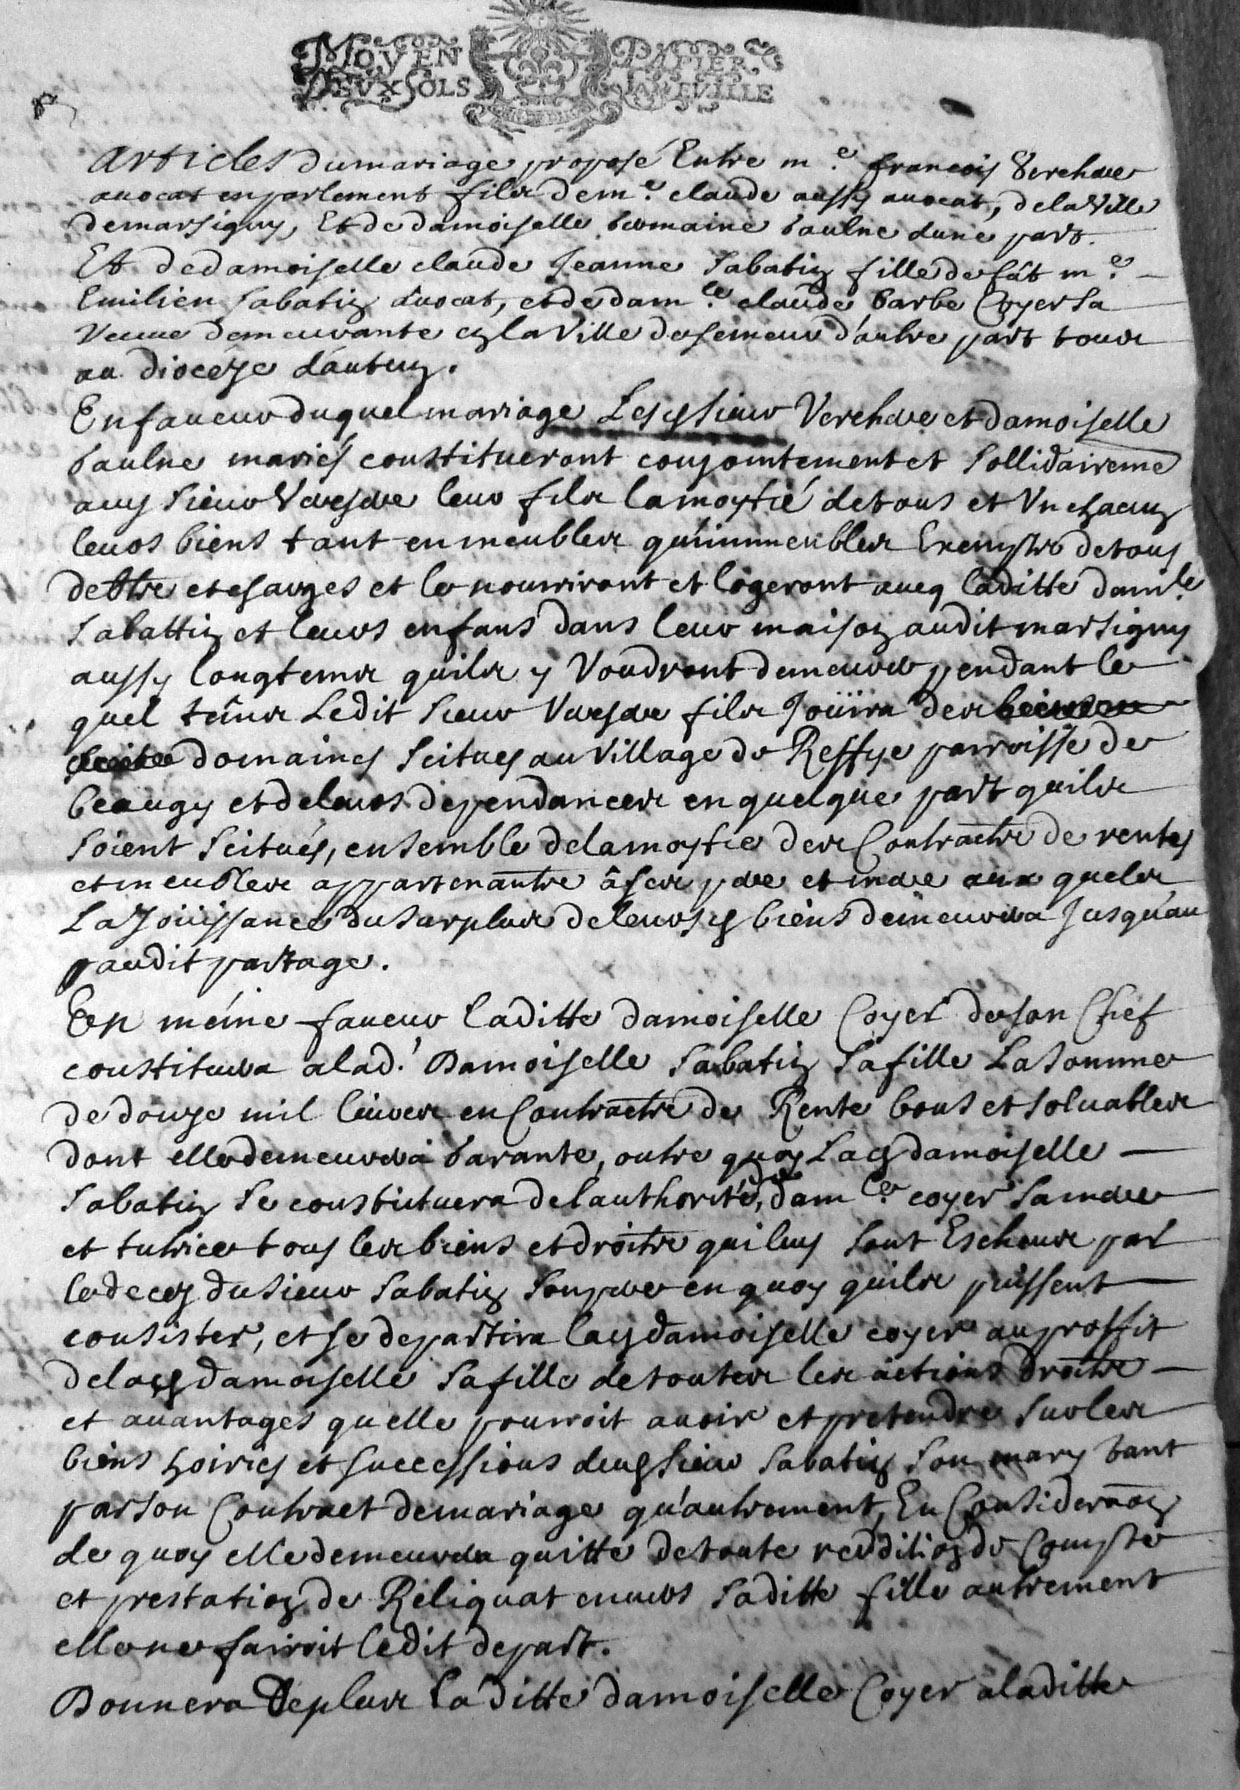 MOYEN PAPIER
DEUX SOLS LA FEVILLE
Articles du mariage proposé Entre m.e francois Verchere
avocat en parlement fils de m.e claude aussy avocat, de la Ville
de marsigny, Et de damoiselle baulne dune part.
Et de damoiselle claude Jeanne Sabatin fille de fût m.e
Emilien Sabatin avocat, et de dam.lle claude barbe Coyer sa
Veuve demeurante en la Ville de semeur d'autre part tous
au diocéze d'autun.
En faveur du quel mariage Lesd. sieur Verchere et damoiselle
baulne mariés constitueront conjointement et sollidairemẽ
aud. sieur Verchere leur fils la moytié de tous et Un chacun
leurs biens tant en meubles qu'immeubles Exempts de tous
debtes et charges et le nourriront et logeront avecq laditte dam.lle
Sabattin et leurs enfans dans leur maison audit marsigny
aussy longtems quils y Voudront demeurer pendant le
quel tems Ledit sieur Verchere fils Joüira des
domaines scitues au Village de Reffye parroisse de
beaugy et de leurs dependances en quelque part quils
soient scitués, ensemble de la moytie des Contracts de rentes
et meubles appartenants â ses pere et mere aux quels
La Joüissance du surplus de leursd. biens demeurera Jusqu'au
audit partage.
En méme faveur laditte damoiselle Coyer de son Chef
constituera a lad. Damoiselle Sabatin sa fille La somme
de douze mil livres en Contracts de Rente bons et solvables
dont elle demeurera garante, outre quoy Lad. damoiselle
Sabatin se constituera de l'authorité de dam.lle coyer sa mere
et tutrice tous les biens et droits qui luy sont Escheus par
le deces du sieur Sabatin son pere en quoy quils puissent
consister, et se departira lad. damoiselle coyer au proffit
de lad. damoiselle sa fille de toutes les actions droits
et avantages quelle pourroit avoir et pretendre sur les
biens hoiries et successions dud. sieur Sabatin son mary tant
par son Contract de mariage qu'autrement, En Consideraon
de quoy elle demeurera quitte de toute reddition de Compte
et prestation de Réliquat envers saditte fille autrement
elle ne fairoit ledit depart.
Donnera de plus laditte damoiselle Coyer a laditte